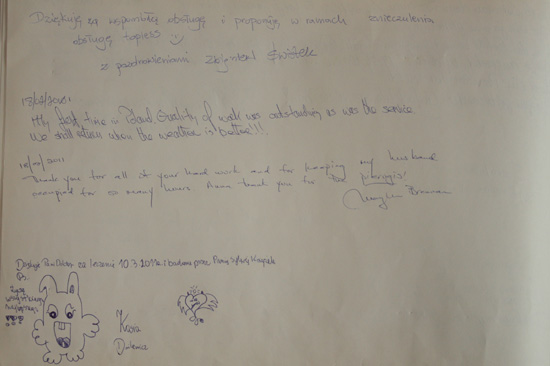 Dziękuję za wspaniałą obsługę i proponuję w ramach znieczulenia
obsługę topless
z pozdrowieniami Zbigniew Świątek
18/02/2011
My first time in Poland. Quality of work was outstanding as was the service
We shall return when the weather is better!!!
10/03/2011
Thank you for all of your hard work and for keeping my husband
occupied for so many hours. Anna thank you for the pierogis!
Dziękuje Pani Doktor za leczenie 10.3.2011r. i badania przez Panią
Ps:
Życzę
wszystkiego
najlepszego
Kasia